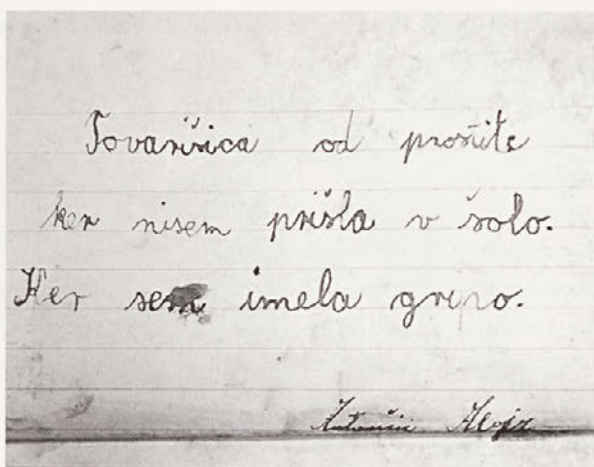 Tovaršica od prostite
ker nisem prišla v šolo.
Ker sem imela gripo.
Alojz